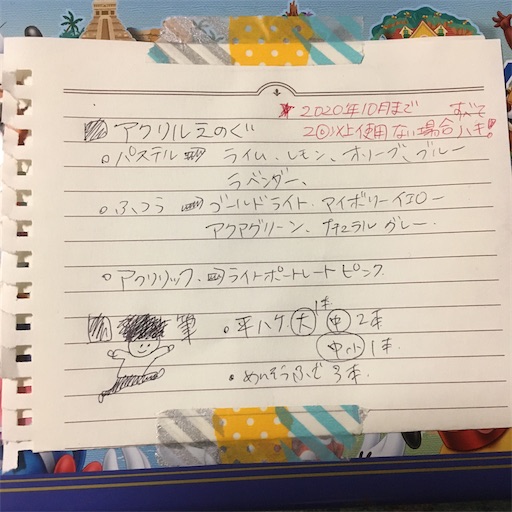 ★2020年10月まで すべて
2回以上使用ない場合ハキ!
アクリルえのぐ
○パステル ライム、レモン、オリーブ、ブルー
ラベンダー、
○ふつう ゴールドライト、アイボリーイエロー
アクアグリーン、ナチュラルグレー
○アクリリック、ライトポートレートピンク
筆 ・平ハケ 大 1本 中 2本
中小 1本.
・めんそうふで 3本.